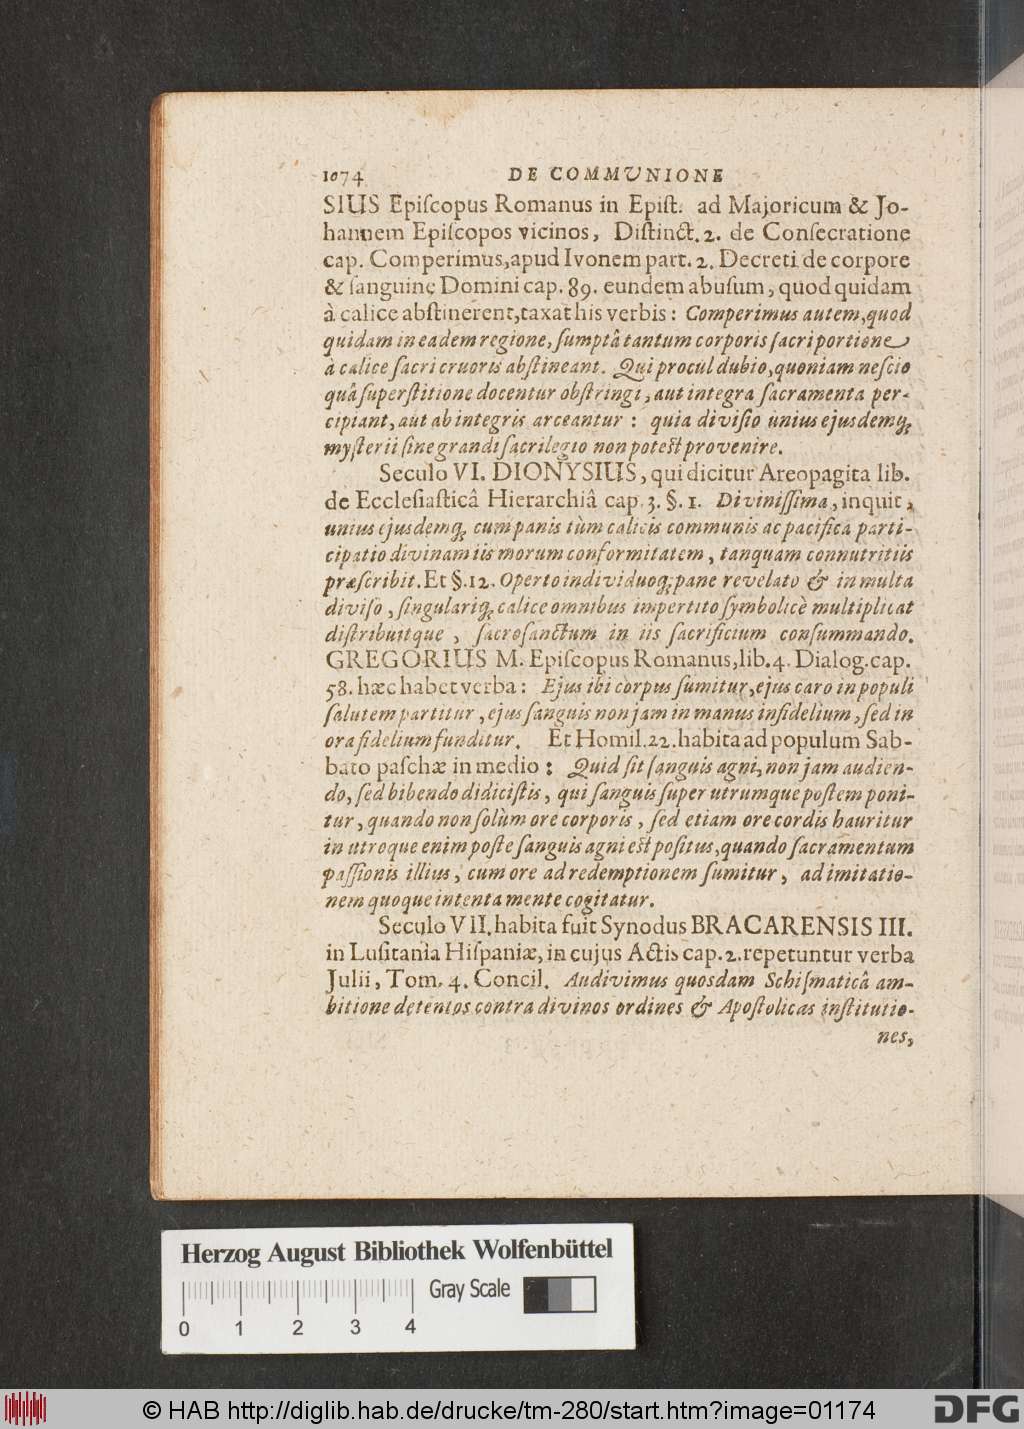 1074 DE COMMUNIONE
SIUS Epiſcopus Romanus in Epiſt. ad Majoricum & Jo-
hannem Epiſcopos vicinos, Diſtinct. 2. de Conſecratione
cap. Comperimus, apud Ivonem part. 2. Decreti de corpore
& ſanguine Domini cap. 89. eundem abuſum, quod quidam
à calice abſtinerent, taxat his verbis: Comperimus autem, quod
quidam in eadem regione, ſumptâ tantum corporis ſacri portione
à calice ſacri cruoris abſtineant. Qui procul dubio, quoniam neſcio
quâ ſuperſtitione docentur obſtringi, aut integra ſacramenta per-
cipiant, aut ab integris arceantur: quia diviſio unius ejusdemq;
myſterii ſine grandi ſacrilegio non poteſt provenire.
Seculo VI. DIONYSIUS, qui dicitur Areopagita lib.
de Eccleſiaſticâ Hierarchiâ cap. 3. §. 1. Diviniſſima, inquit,
unius ejusdemq; cum panis tùm calicis communis ac pacifica parti-
cipatio divinam iis morum conformitatem, tanquam connutritiis
præſcribit. Et §. 12. Operto individuoq; pane revelato & in multa
diviſo, ſingulariq; calice omnibus impertito ſymbolicè multiplicat
diſtribuitque, ſacroſanctum in iis ſacrificium conſummando.
GREGORIUS M. Epiſcopus Romanus, lib. 4. Dialog. cap.
58. hæc habet verba: Ejus ibi corpus ſumitur, ejus caro in populi
ſalutem partitur, ejus ſanguis non jam in manus infidelium, ſed in
ora fidelium funditur. Et Homil. 22. habita ad populum Sab-
bato paſchæ in medio: Quid ſit ſanguis agni, non jam audien-
do, ſed bibendo didiciſtis, qui ſanguis ſuper utrumque poſtem poni-
tur, quando non ſolùm ore corporis, ſed etiam ore cordis hauritur
in utroque enim poſte ſanguis agni eſt poſitus, quando ſacramentum
paſſionis illius, cum ore ad redemptionem ſumitur, ad imitatio-
nem quoque intenta mente cogitatur.
Seculo VII. habita fuit Synodus BRACARENSIS III.
in Luſitania Hiſpaniæ, in cujus Actis cap. 2. repetuntur verba
Julii, Tom. 4. Concil. Audivimus quosdam Schiſmaticâ am-
bitione detentos contra divinos ordines & Apoſtolicas inſtitutio-
nes,
Herzog August Bibliothek Wolfenbüttel
Gray Scale
0 1 2 3 4
© HAB http://diglib.hab.de/drucke/tm-280/start.htm?image=01174
DFG